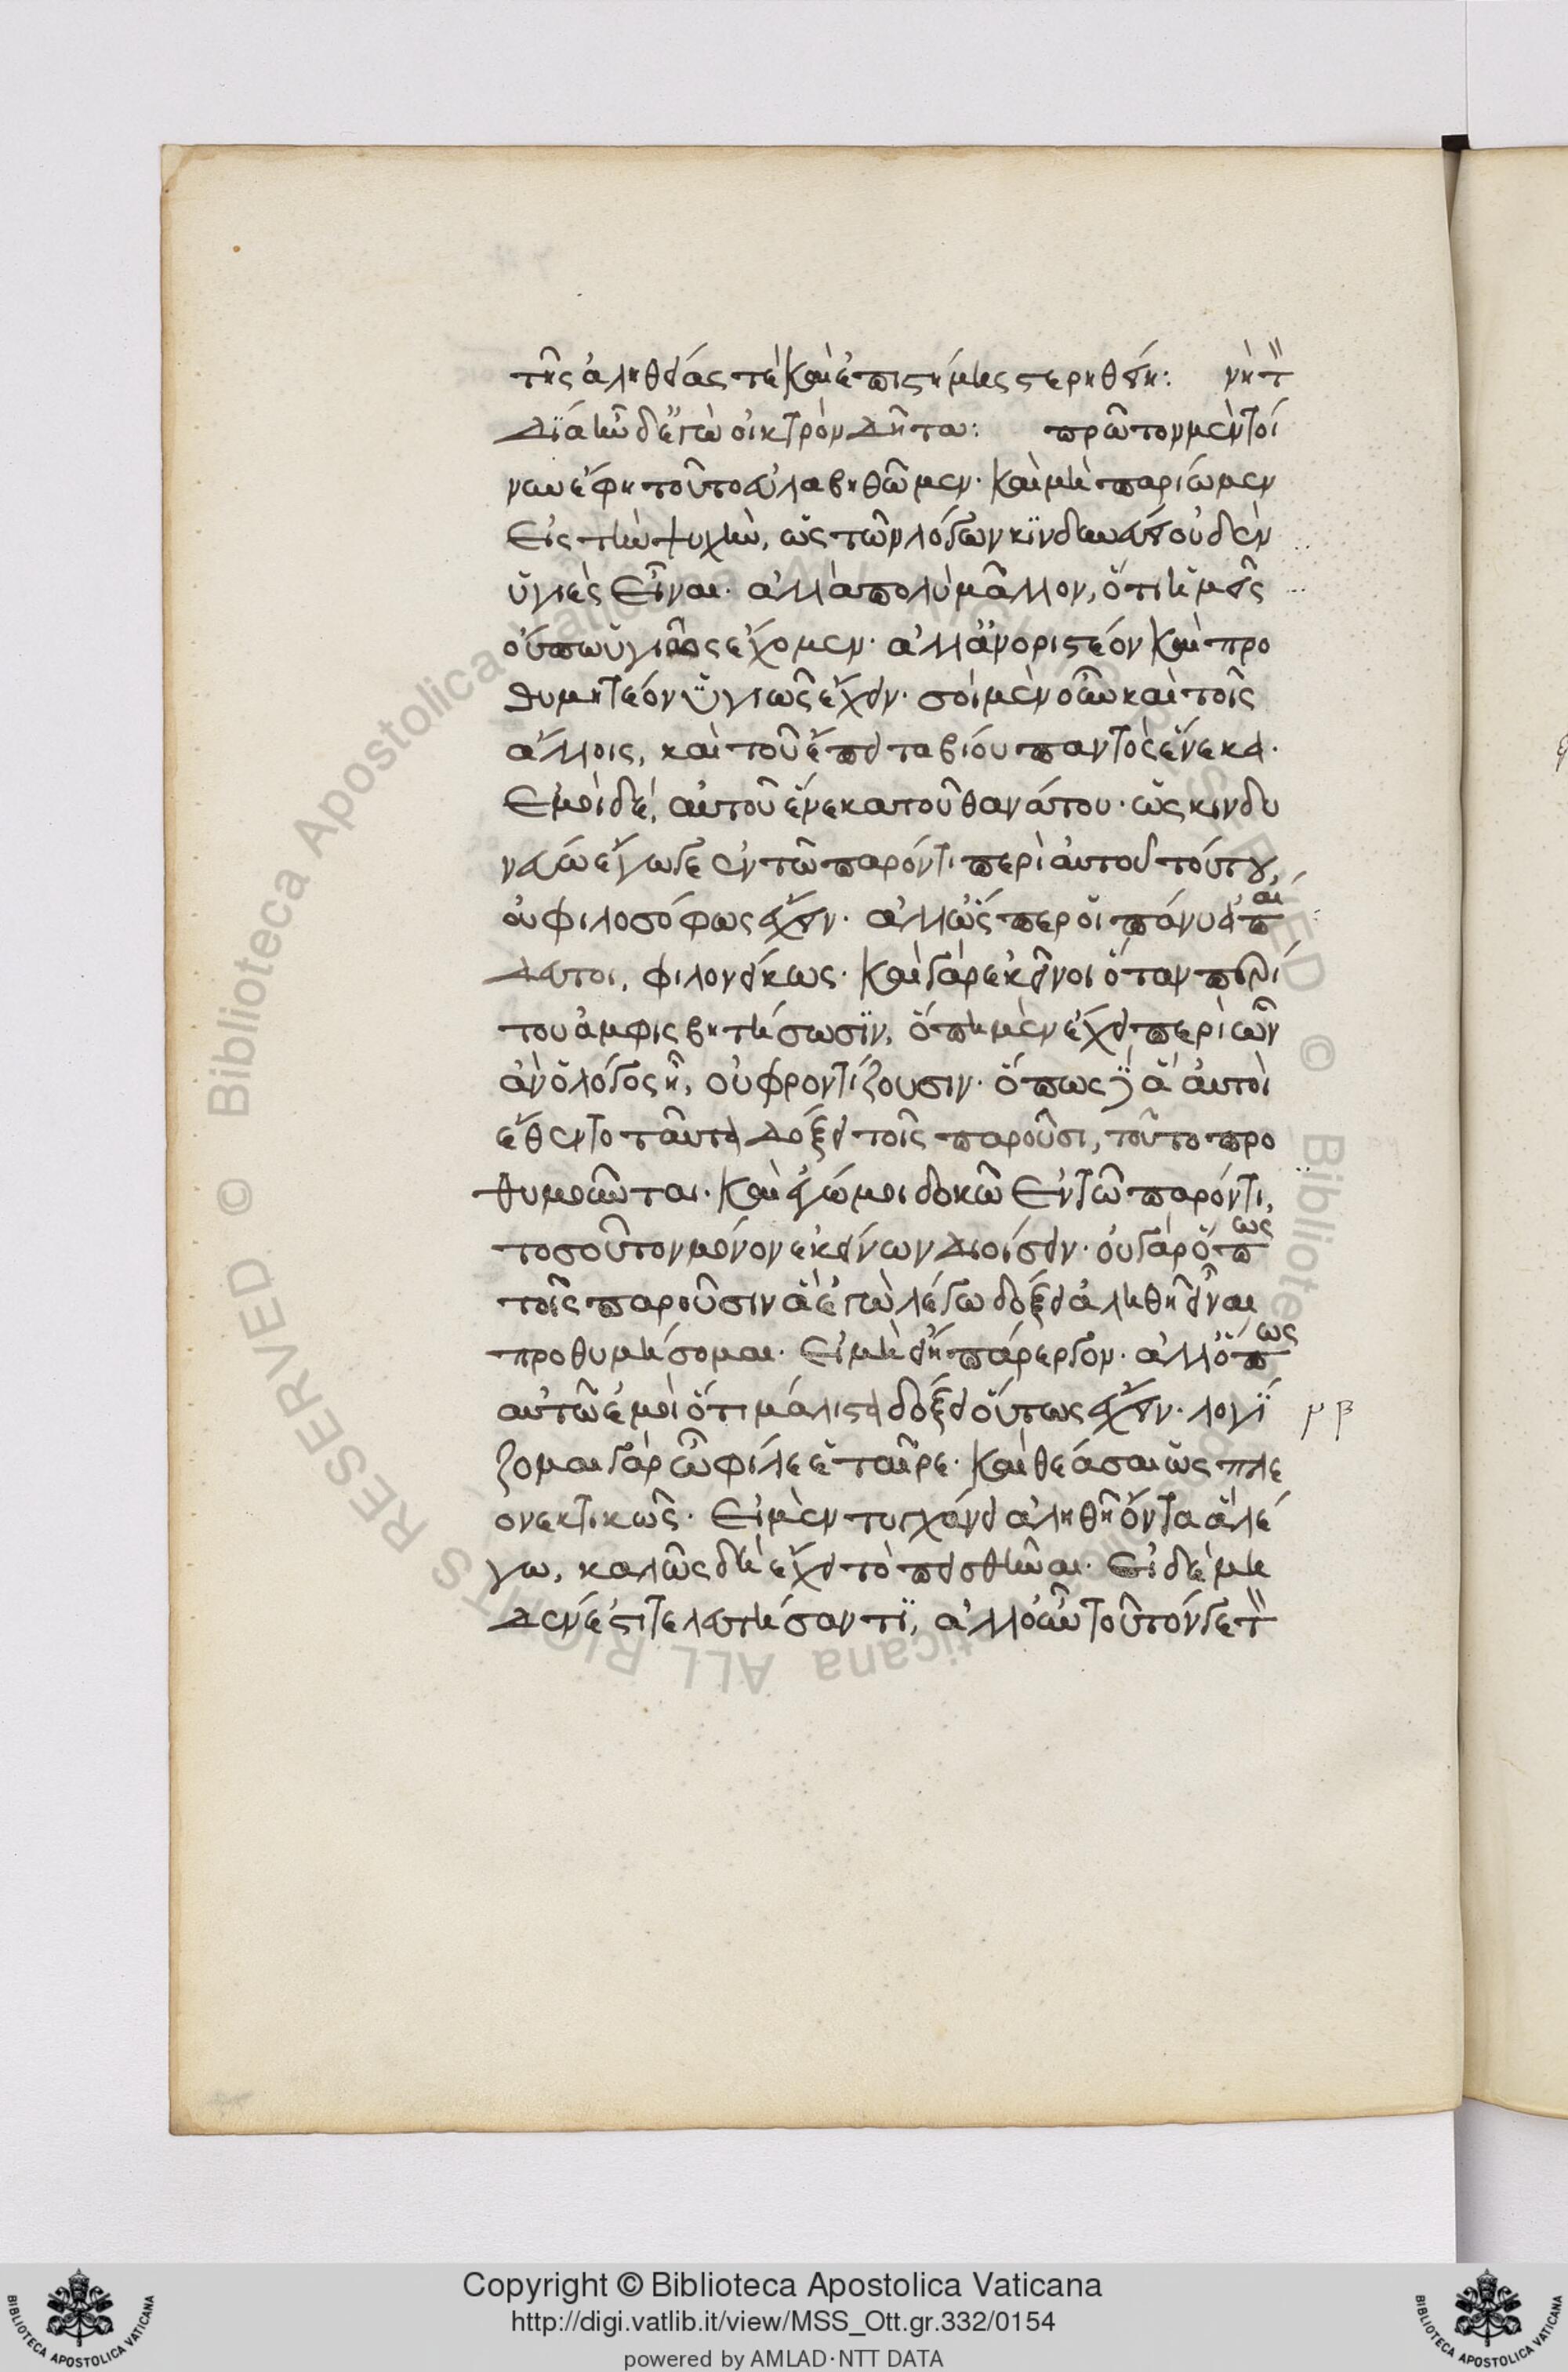 τῆς ἀληθείας τὲ καὶ ἐπιστήμης στερηθείη: νὴ τ
Δία ἦν δ' ἐγὼ οἰκτρὸν δῆτα: πρῶτον μὲν τοί
νυν ἔφη τοῦτο εὐλαβηθῶμεν· καὶ μὴ παρίωμεν
εἰς τὴν ψυχὴν, ὡς τῶν λόγων κινδυνεύει οὐδὲν
ὑγιὲς εἶναι· ἀλλὰ πολὺ μᾶλλον, ὅτι ἡμεῖς
οὔπω ὑγιῶς ἔχομεν· ἀλλὰ ἀνοριστέον καὶ προ
θυμητέον ὑγιῶς ἔχειν· σοὶ μὲν οὖν καὶ τοῖς
ἄλλοις, καὶ τοῦ ἔπειτα βίου παντὸς ἕνεκα·
Ἐμοὶ δὲ, αὐτοῦ ἕνεκα τοῦ θανάτου· ὡς κινδυ
νεύω ἔγωγε ἐν τῶ παρόντι περὶ αὐτοῦ τούτου,
οὐ φιλοσόφως ἔχειν· ἀλλ' ὥσπερ οἱ πάνυ ἀπαί
δευτοι, φιλονείκως· καὶ γὰρ ἐκεῖνοι ὅταν περί
του ἀμφισβητήσωσιν, ὅπη μὲν ἔχει περὶ ὧν
ἂν ὁ λόγος ἦ, οὐ φροντίζουσιν· ὅπως δὲ ἃ αὐτοὶ
ἔθεντο ταῦτα δόξει τοῖς παροῦσι, τοῦτο προ
θυμοῦνται. καὶ ἐγώ μοι δοκῶ ἐν τῶ παρόντι,
τοσοῦτον μόνον ἐκείνων διοίσειν· οὐ γὰρ ὅπως
τοῖς παροῦσιν ἃ ἐγὼ λέγω δόξει ἀληθῆ εἶναι
προθυμήσομαι· εἰ μὴ εἴη πάρεργον· ἀλλ' ὅπως
αὐτῶ ἐμοὶ ὅτι μάλιστα δόξει οὕτως ἔχειν· λογί
ζομαι γὰρ ὦ φίλε ἑταῖρε· καὶ θέασαι ὡς πλε
ονεκτικῶς· εἰ μὲν τυγχάνει ἀληθῆ ὄντα ἃ λέ
γω, καλῶς δὴ ἔχει τὸ πεισθῆναι· εἰ δὲ μη
δέν ἐστι τελευτήσαντι, ἀλλ' οὖν τοῦτόν γε τ
μβ
Copyright © Biblioteca Apostolica Vaticana
http://digi.vatlib.it/view/MSS_Ott.gr.332/0154
powered by AMLAD·NTT DATA